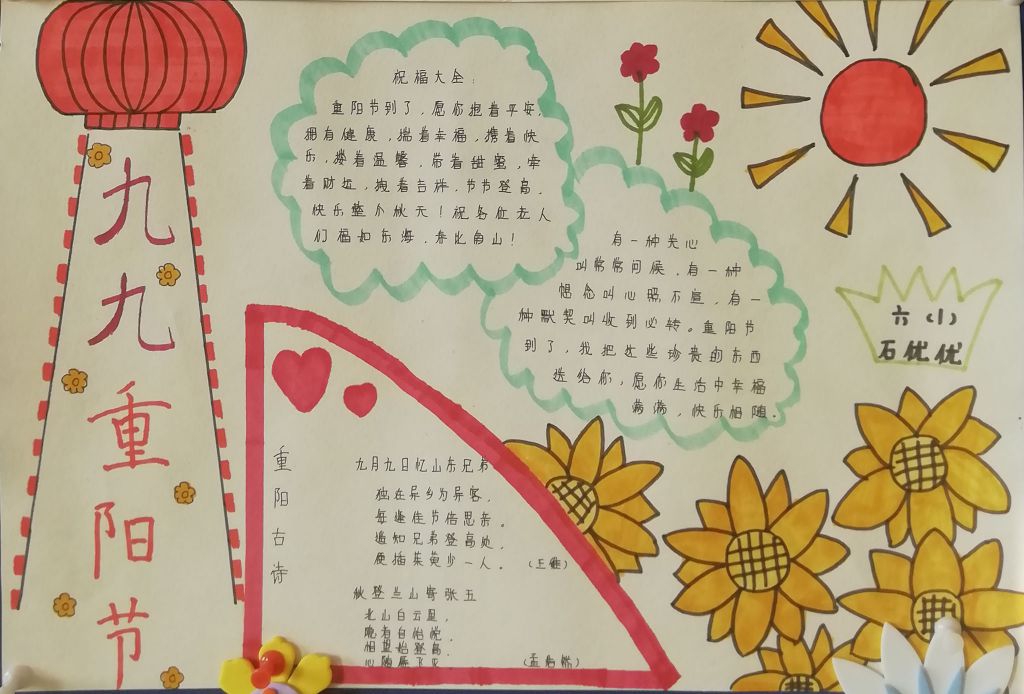 九九重阳节
祝福大全:
重阳节到了,愿你抱着平安,
拥有健康,揣着幸福,携着快
乐,搂着温馨,带着甜蜜,牵
着财运,拽着吉祥,节节登高,
快乐整个秋天!祝各位老人
们福如东海,寿比南山!
有一种关心
叫常常问候,有一种
想念叫心照不宣,有一
种默契叫收到必转。重阳节
到了,我把这些珍贵的东西
送给你,愿你生活中幸福
满满,快乐相随。
六(1)
石优优
重阳古诗
九月九日忆山东兄弟
独在异乡为异客,
每逢佳节倍思亲。
遥知兄弟登高处,
便插茱萸少一人。(王维)
秋登兰山寄张五
北山白云里,
隐者自怡悦。
相望始登高,
心随雁飞灭(孟浩然)